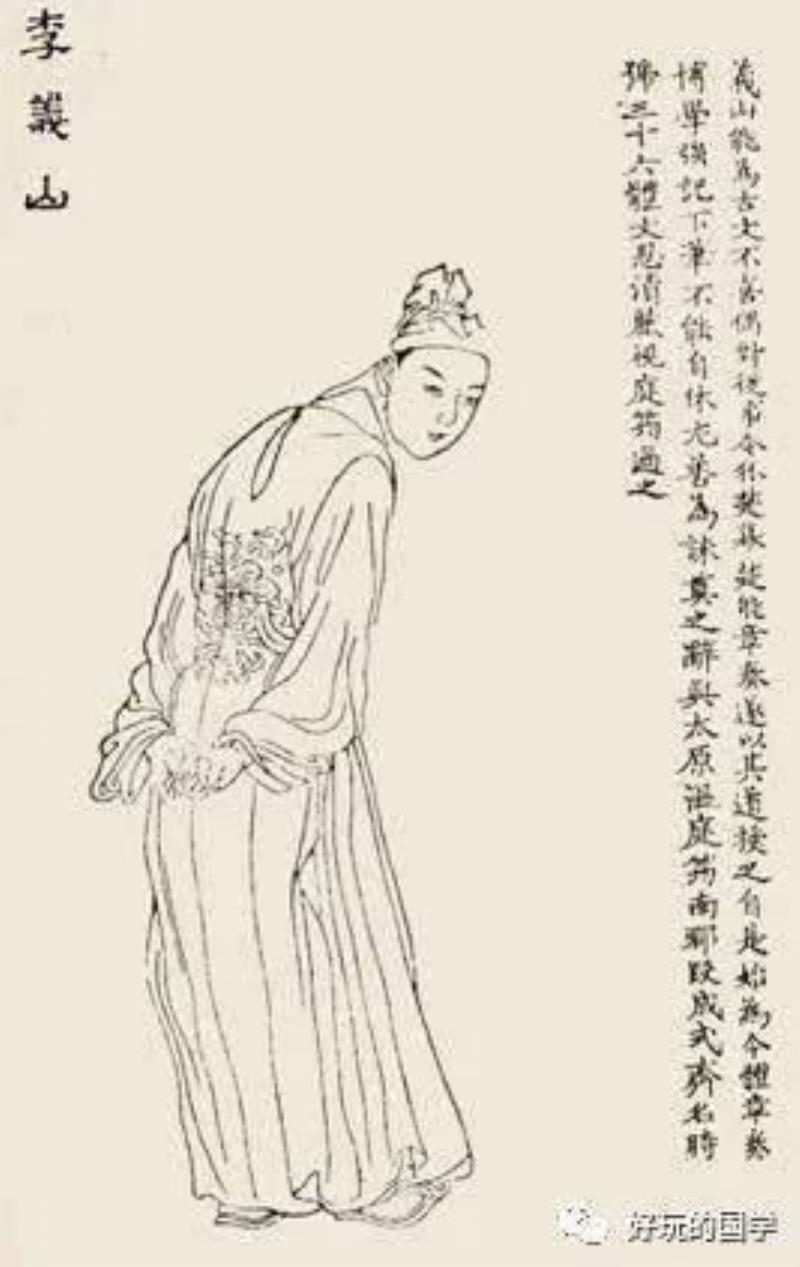 李義山
義山能為古文不喜偶對從事令狐楚幕楚能章奏遂以其道授之自是始為今體章奏
博學強記下筆不能自休尤善為誄奠之辭與太原溫庭筠南郡段成式齊名時
號三十六體文思清麗視庭筠過之
好玩的国学